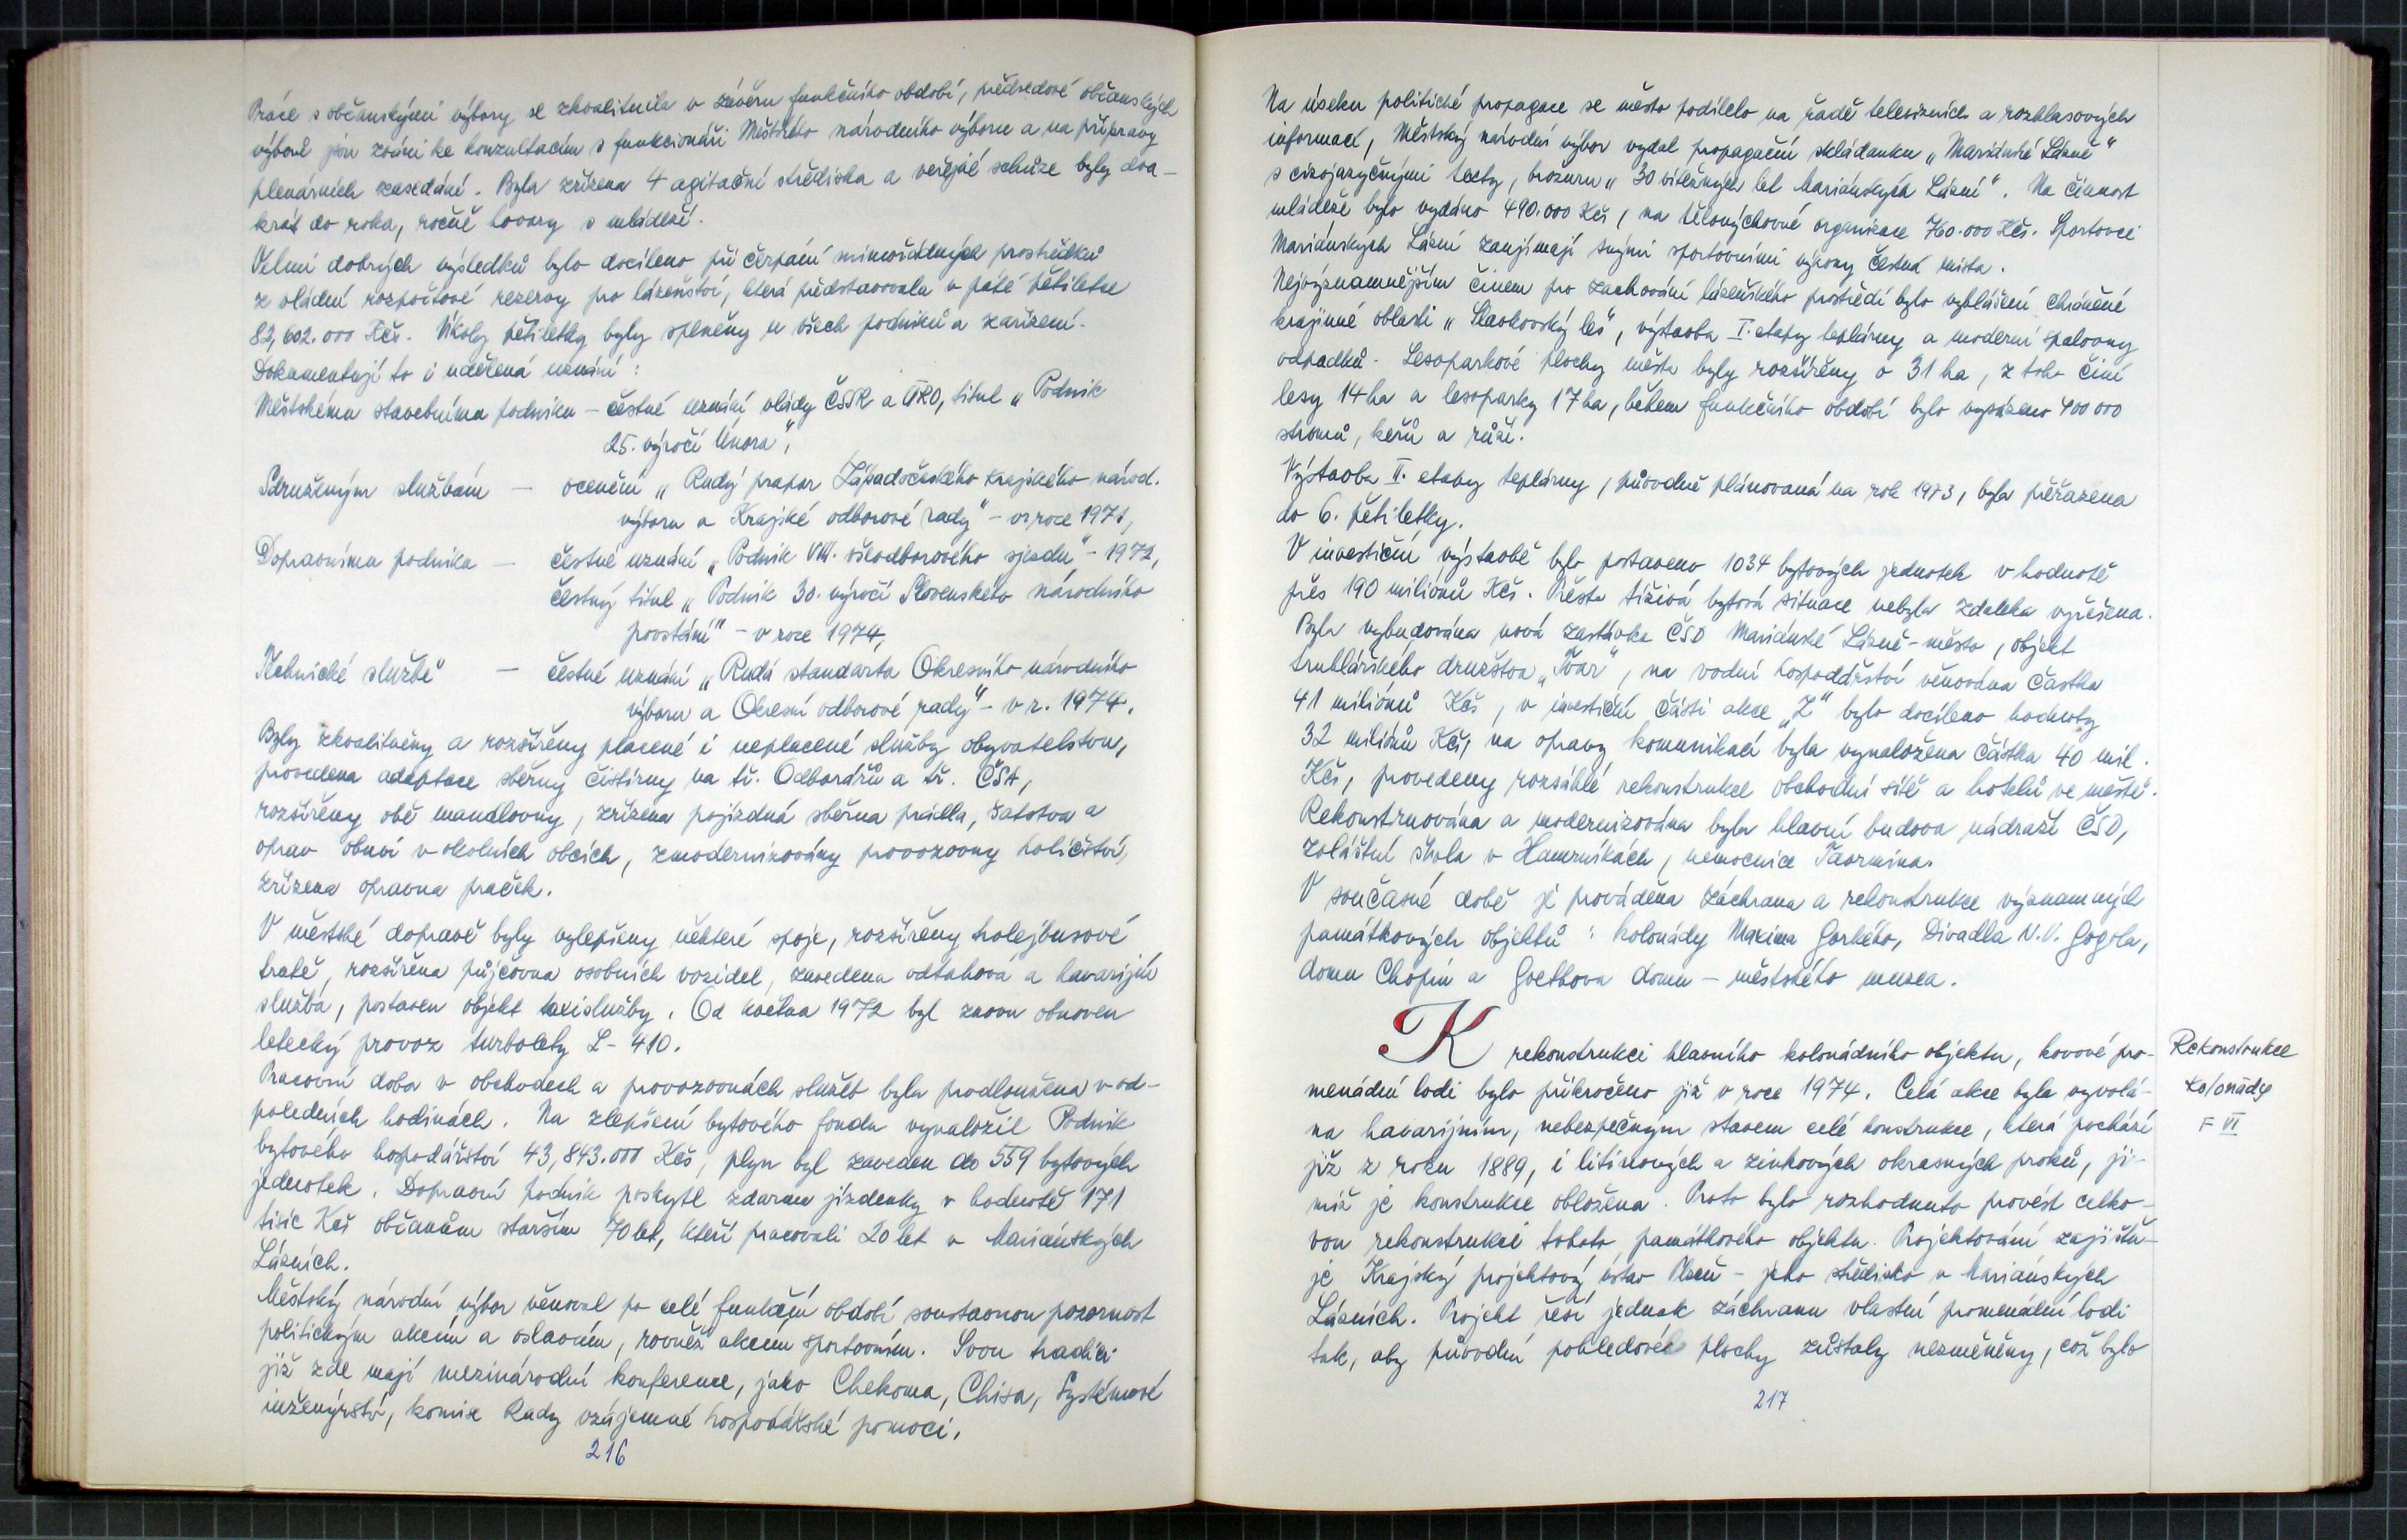 Práce s občanskými výbory se zkvalitnila v závěru funkčního období, předsedové občanských
výborů jsou zváni ke konzultacím s funkcionáři Městského národního výboru a na přípravy
plenárních zasedání. Byla zřízena 4 agitační střediska a veřejné schůze byly dva-
krát do roka, ročně hovory s mládeží.
Velmi dobrých výsledků bylo docíleno při čerpání mimořádných prostředků
z vládní rozpočtové rezervy pro lázeňství, která představovala v páté pětiletce
82,602.000 Kčs. Úkoly pětiletky byly splněny u všech podniků a zařízení.
Dokumentují to i udělená uznání:
Městskému stavebnímu podniku – čestné uznání vlády ČSSR a ÚRO, titul „Podnik
25. výročí Února",
Sdruženým službám – ocenění „Rudý prapor Západočeského krajského národ.
výboru a Krajské odborové rady" – v roce 1971,
Dopravnímu podniku – čestné uznání „Podnik VIII. všeodborového sjezdu" – 1972,
čestný titul „Podnik 30. výročí Slovenského národního
povstání" – v roce 1974,
Technické službě – čestné uznání „Rudá standarta Okresního národního
výboru a Okresní odborové rady" – v r. 1974.
Byly zkvalitněny a rozšířeny placené i neplacené služby obyvatelstvu,
provedena adaptace sběrny čistírny na tř. Odborářů a tř. ČSA,
rozšířeny obě mandlovny, zřízena pojízdná sběrna prádla, šatstva a
oprav obuvi v okolních obcích, zmodernizovány provozovny holičství,
zřízena opravna praček.
V městské dopravě byly vylepšeny některé spoje, rozšířeny trolejbusové
tratě, rozšířena půjčovna osobních vozidel, zavedena odtahová a havarijní
služba, postaven objekt taxislužby. Od května 1972 byl znovu obnoven
letecký provoz turbolety L-410.
Pracovní doba v obchodech a provozovnách služeb byla prodloužena v od-
poledních hodinách. Na zlepšení bytového fondu vynaložil Podnik
bytového hospodářství 43,843.000 Kčs, plyn byl zaveden do 559 bytových
jednotek. Dopravní podnik poskytl zdarma jízdenky v hodnotě 171
tisíc Kčs občanům starším 70 let, kteří pracovali 20 let v Mariánských
Lázních.
Městský národní výbor věnoval po celé funkční období soustavnou pozornost
politickým akcím a oslavám, rovněž akcím sportovním. Svou tradici
již zde mají mezinárodní konference, jako Chekoma, Chisa, Systémové
inženýrství, komise Rady vzájemné hospodářské pomoci.
216
Na úseku politické propagace se město podílelo na řadě televizních a rozhlasových
informací, Městský národní výbor vydal propagační skládanku „Mariánské Lázně"
s cizojazyčnými texty, brožuru „30 vítězných let Mariánských Lázní". Na činnost
mládeže bylo vydáno 490.000 Kčs, na tělovýchovné organizace 760.000 Kčs. Sportovci
Mariánských Lázní zaujímají svými sportovními výkony čestná místa.
Nejvýznamnějším činem pro zachování lázeňského prostředí bylo vyhlášení chráněné
krajinné oblasti „Slavkovský les", výstavba I. etapy teplárny a moderní spalovny
odpadků. Lesoparkové plochy města byly rozšířeny o 31 ha, z toho činí
lesy 14 ha a lesoparky 17 ha, během funkčního období bylo vysázeno 400 000
stromů, keřů a růží.
Výstavba II. etapy teplárny, původně plánovaná na rok 1973, byla přeřazena
do 6. pětiletky.
V investiční výstavbě bylo postaveno 1034 bytových jednotek v hodnotě
přes 190 miliónů Kčs. Přesto tíživá bytová situace nebyla zdaleka vyřešena.
Byla vybudována nová zastávka ČSD Mariánské Lázně-město, objekt
truhlářského družstva „Tvar", na vodní hospodářství věnována částka
41 miliónů Kčs, v investiční části akce „Z" bylo docíleno hodnoty
32 miliónů Kčs, na opravy komunikací byla vynaložena částka 40 mil.
Kčs, provedeny rozsáhlé rekonstrukce obchodní sítě a hotelů ve městě.
Rekonstruována a modernizována byla hlavní budova nádraží ČSD,
zvláštní škola v Hamrníkách, nemocnice Taormina.
V současné době je prováděna záchrana a rekonstrukce významných
památkových objektů: kolonády Maxima Gorkého, Divadla N.V. Gogola,
domu Chopin a Goethova domu – městského muzea.
K rekonstrukci hlavního kolonádního objektu, kovové pro-
menádní lodi bylo přikročeno již v roce 1974. Celá akce byla vyvolá-
na havarijním, nebezpečným stavem celé konstrukce, která pochází
již z roku 1889, i litinových a zinkových okrasných prvků, ji-
miž je konstrukce obložena. Proto bylo rozhodnuto provést celko-
vou rekonstrukci tohoto památkového objektu. Projektování zajišťu-
je Krajský projektový ústav Plzeň – jeho středisko v Mariánských
Lázních. Projekt řeší jednak záchranu vlastní promenádní lodi
tak, aby původní pohledové plochy zůstaly nezměněny, což bylo
217
Rekonstrukce
kolonády
F VI